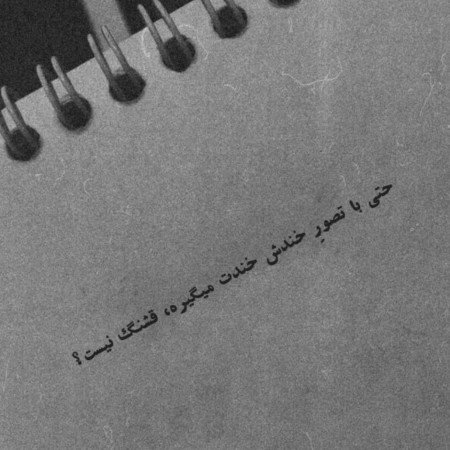 حتی با تصورِ خندش خندت میگیره، قشنگ نیست؟